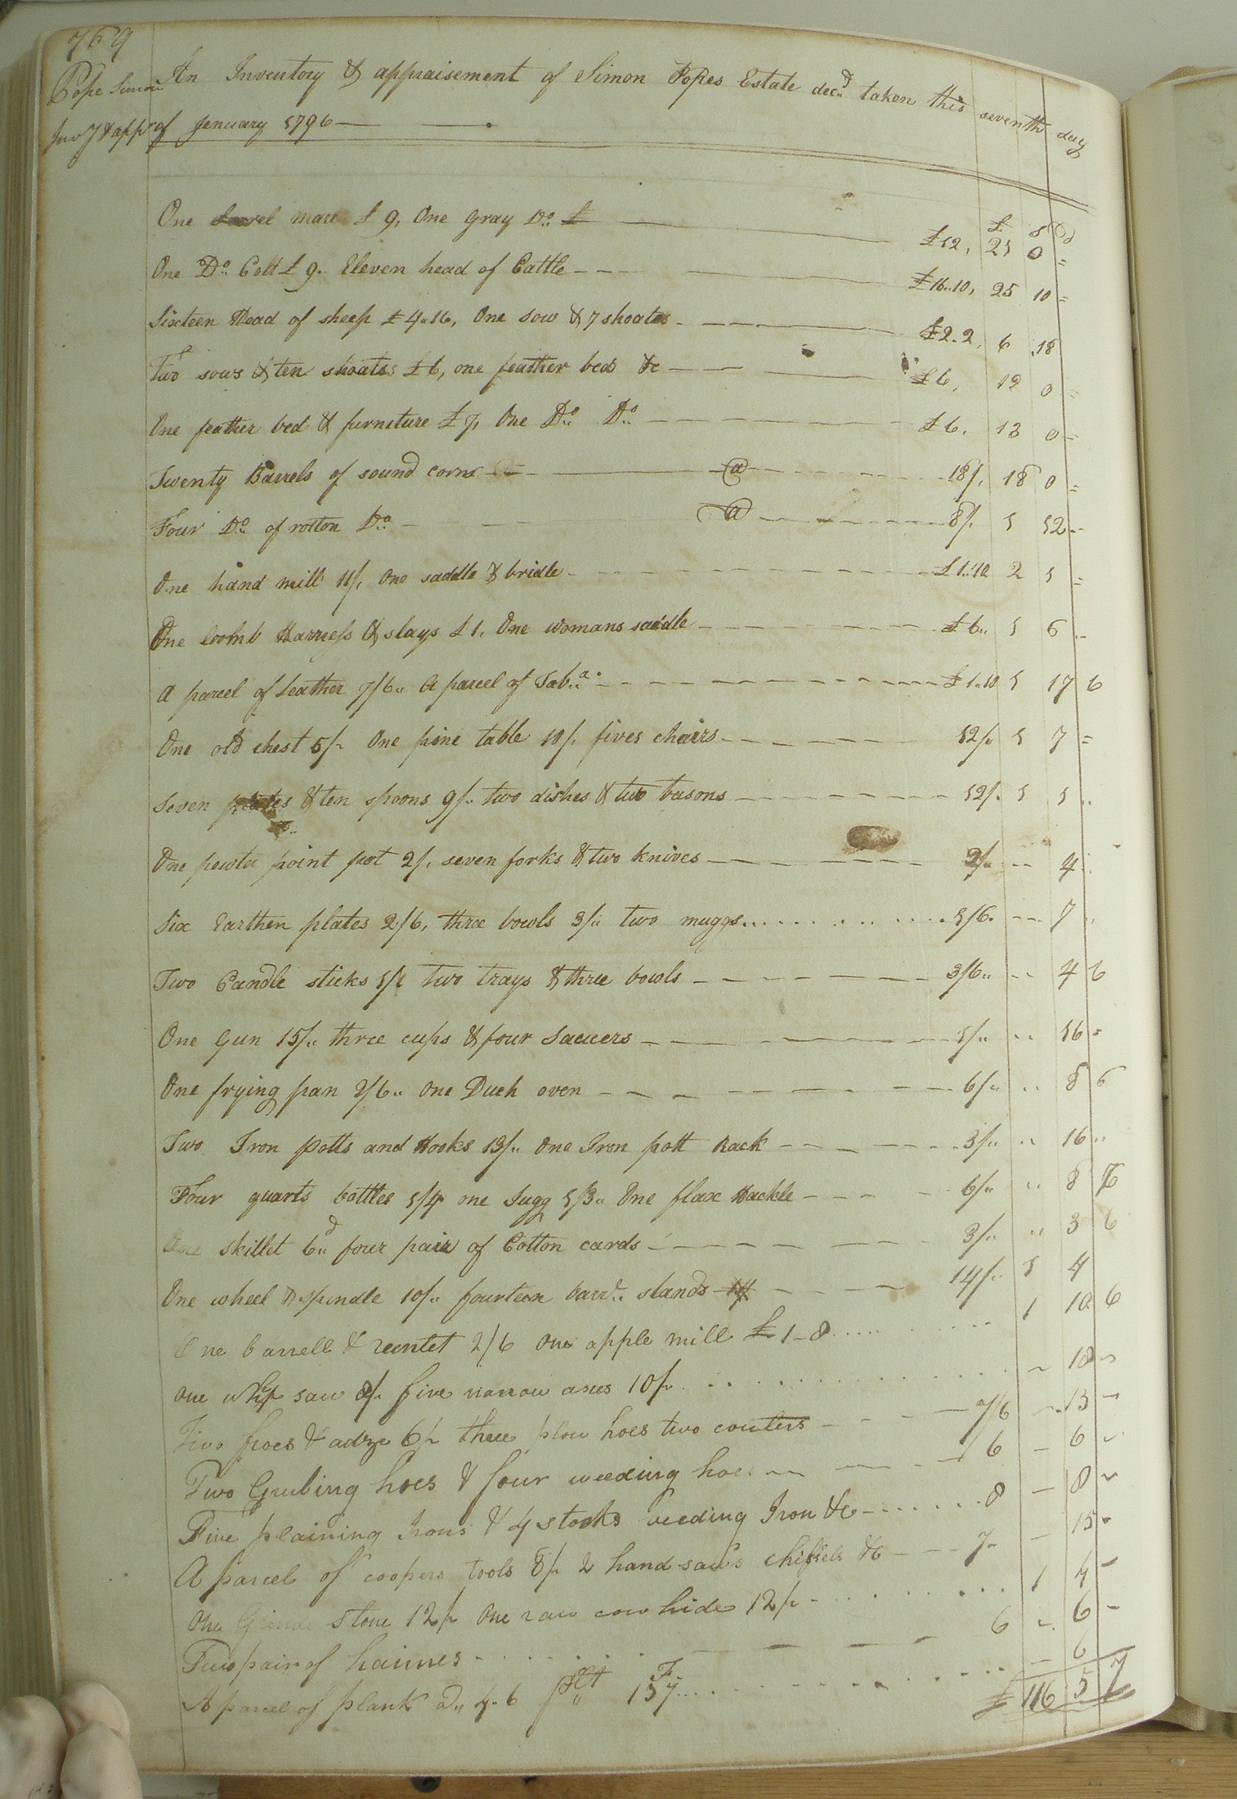 769
Pope Simon
Inv.y & app.t
An Inventory & appraisement of Simon Popes Estate dec.d taken this seventh day
of Jenuary 1796
£ s d
One Sorrel mare £ 9, One Gray Do. £ £12, 21 0 =
One Do. Colt £ 9. Eleven head of Cattle £16..10, 25 10 =
Sixteen Head of sheep £4..16, One sow & 7 shoates £2..2, 6 18
Two sows & ten shoates £6, one feather bed &c £6, 12 0 =
One feather bed & furneture £7, One Do. Do. £6. 13 0 =
Twenty Barrels of sound corne @ 18/. 18 0 =
Four Do. of rotton Do. @ 8/. 1 12
One hand mill 11/, One saddle & bridle £1..10 2 1 =
One loomb Harness & slays £1, One womans saddle £6.. 1 6
A parcel of Leather 7/6.. A parcel of Tob.a £1..10 1 17 6
One old chest 5/. One pine table 10/. fives chairs 12/. 1 7 =
Seven plates & ten spoons 9/.. two dishes & two basons 12/. 1 1
One pewter point pot 2/, seven forks & two knives 2/. 4
Six Earthen plates 2/6, three bowls 3/.. two muggs 1/6. 7
Two Candle sticks 1/. two trays & three bowls 3/6.. 4 6
One Gun 15/.. three cups & four Saucers 1/.. 16 =
One frying pan 2/6.. One Duch oven 6/.. 8 6
Two Iron potts and Hooks 13/.. One Iron pott Rack 3/.. 16
Four quarts bottles 1/4 one Jugg 1/3.. One flax Hackle 6/.. 8 7
One skillet 6d.. four pair of Cotton cards 3/.. 3 6
One wheel & spindle 10/.. fourteen barr.l stands 14/.. 1 4
One barrell & 2/6 One apple mill £1-8 1 10 6
One whip saw 8/. five narrow axes 10/. 18
Two hoes & adze 6/. three plow hoes two coulters 7/6 13
Two Grubing hoes & four weeding hoes 6 6
Five plaining Irons & 4 stocks Iron &c 8 8
A Parcel of coopers tools 8/. 2 hand saws chissels &c 7. 15
One Grind stone 12/. One raw cow hide 12/. 1 4
Two pair of haimes 6 6
A parcel of plank 4..6 15 6
£ 116 5 7